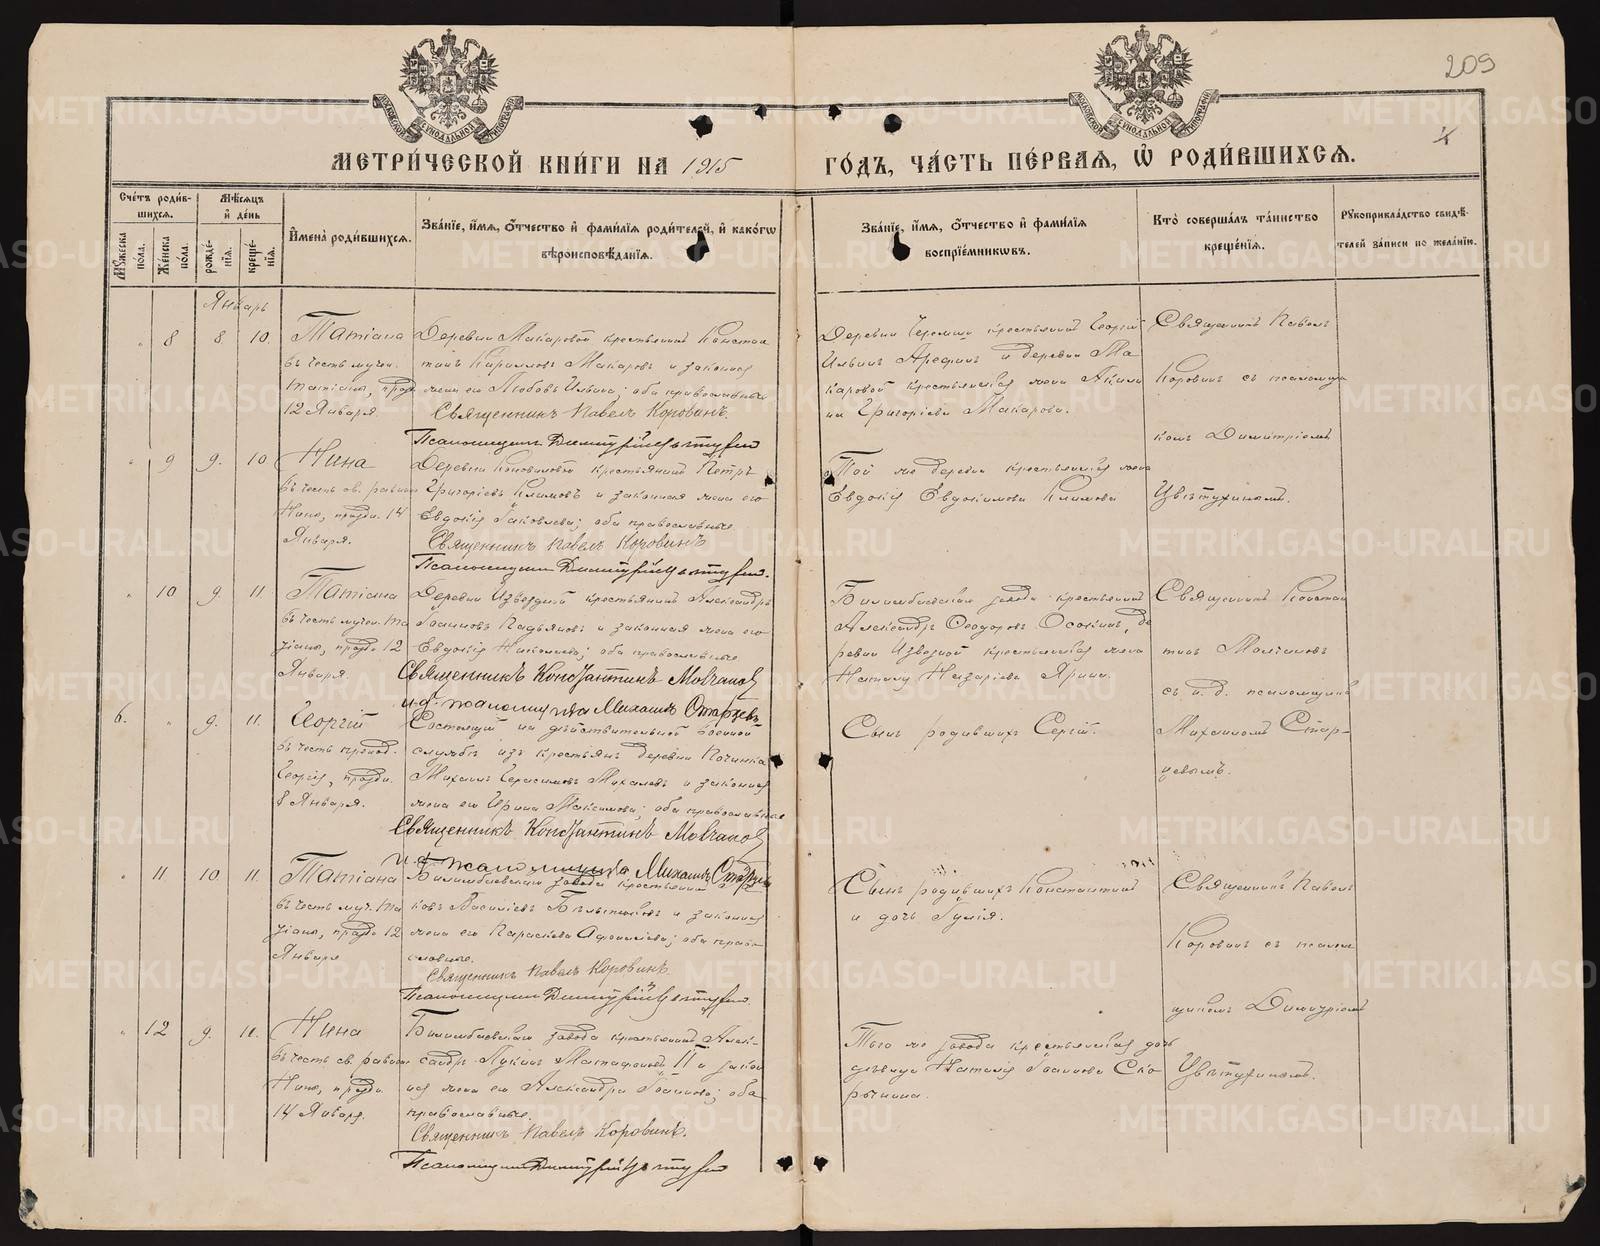 209
4
МЕТРИ́ЧЕСКОЙ КНИ́ГИ НА 1915 ГО́ДЪ, ЧА́СТЬ ПЕ́РВАЯ, Ѡ҆ РОДИ́ВШИХСЯ.
Сче́тъ роди́вшихся.
Мѣ́сяцъ и҆ де́нь
Мꙋ́жеска по́ла.
Же́нска по́ла.
рожде́нїѧ.
креще́нїѧ.
И҆мена̀ роди́вшихся.
Зва́нїе, и҆́мѧ, ѻ҆́тчество и҆ фами́лїѧ роди́телей, и҆ како́гѡ
вѣроисповѣ́данїѧ.
Зва́нїе, и҆́мѧ, ѻ҆́тчество и҆ фами́лїѧ
воспрїе́мникѡвъ.
Кто̀ соверша́лъ та́инство
креще́нїѧ.
Рꙋкоприкла́дство свидѣ́-
телей за́писи по жела́нїю.
Январь
8 8 10.
Татіана
въ честь мучен.
Татіаны, празд.
12 Января.
Деревни Макаровой крестьянинъ Констан
тинъ Кирилловъ Макаровъ и законная
жена его Любовь Ильина; оба православные
Священникъ Павелъ Коровинъ.
Псаломщикъ Димитрій Цвѣтухин
Деревни Черемши крестьянинъ Георгій
Ильинъ Арефинъ и деревни Ма
каровой крестьянская жена Акили
на Григоріева Макарова.
Священникъ Павелъ
Коровинъ съ псаломщи
комъ Димитріемъ
Цвѣтухинымъ.
9 9. 10.
Нина
въ честь св. равноап
Нины, праздн. 14
Января.
Деревни Коноваловой крестьянинъ Петръ
Григорьевъ Климовъ и законная жена его
Евдокія Іаковлева; оба православные.
Священникъ Павелъ Коровинъ
Псаломщикъ Димитрій Цвѣтухин.
Той же деревни крестьянская жена
Евдокія Евдокимова Климова
10 9. 11.
Татіана
въ честь мучен. Та
тіаны, праздн. 12
Января.
Деревни Извездной крестьянинъ Александръ
Іоанновъ и законная жена его
Евдокія Николаева; оба православные
Священникъ Константинъ Молчановъ
и.д. псаломщика Михаилъ Старцевъ
Билимбаевскаго завода крестьянинъ
Александръ Ѳеодоровъ Осокинъ, де
ревни Извезной крестьянская жена
Наталія Назаріева Ярина.
Священникъ Констан
тинъ Молчановъ
съ и.д. псаломщика
Михаиломъ Стар-
цевымъ.
6. 9. 11.
Георгій
въ честь препод.
Георгія, праздн.
8 Января.
Состоящій на дѣйствительной военной
службѣ изъ крестьянъ деревни Починка
Михаилъ Герасимовъ Михалевъ и законная
жена его Ирина Максимова; оба православные
Священникъ Константинъ Молчановъ
и.д. псаломщика Михаилъ Старцевъ
Сынъ родившихъ Сергій.
11 10. 11.
Татіана
въ честь муч. Та
тіаны, праздн. 12
Января
Билимбаевскаго завода крестьянинъ Іа
ковъ Василіевъ и законная
жена его Параскева Аѳонасіева; оба право
славные.
Священникъ Павелъ Коровинъ
Псаломщикъ Димитрій Цвѣтухин
Сынъ родившихъ Константинъ
и дочь Іулія.
Священникъ Павелъ
Коровинъ съ псалом
щикомъ Димитріемъ
Цвѣтухинымъ.
12 9. 11.
Нина
въ честь св. равноап
Нины, праздн.
14 Января.
Билимбаевскаго завода крестьянинъ Алек-
сандръ Лукинъ II и закон
ная жена его Александра Іоаннова; оба
православные.
Священникъ Павелъ Коровинъ.
Псаломщикъ Димитрій Цвѣтухин
Того же завода крестьянская дочь
дѣвица Наталія Іоаннова Ско
рынина.
METRIKI.GASO-URAL.RU